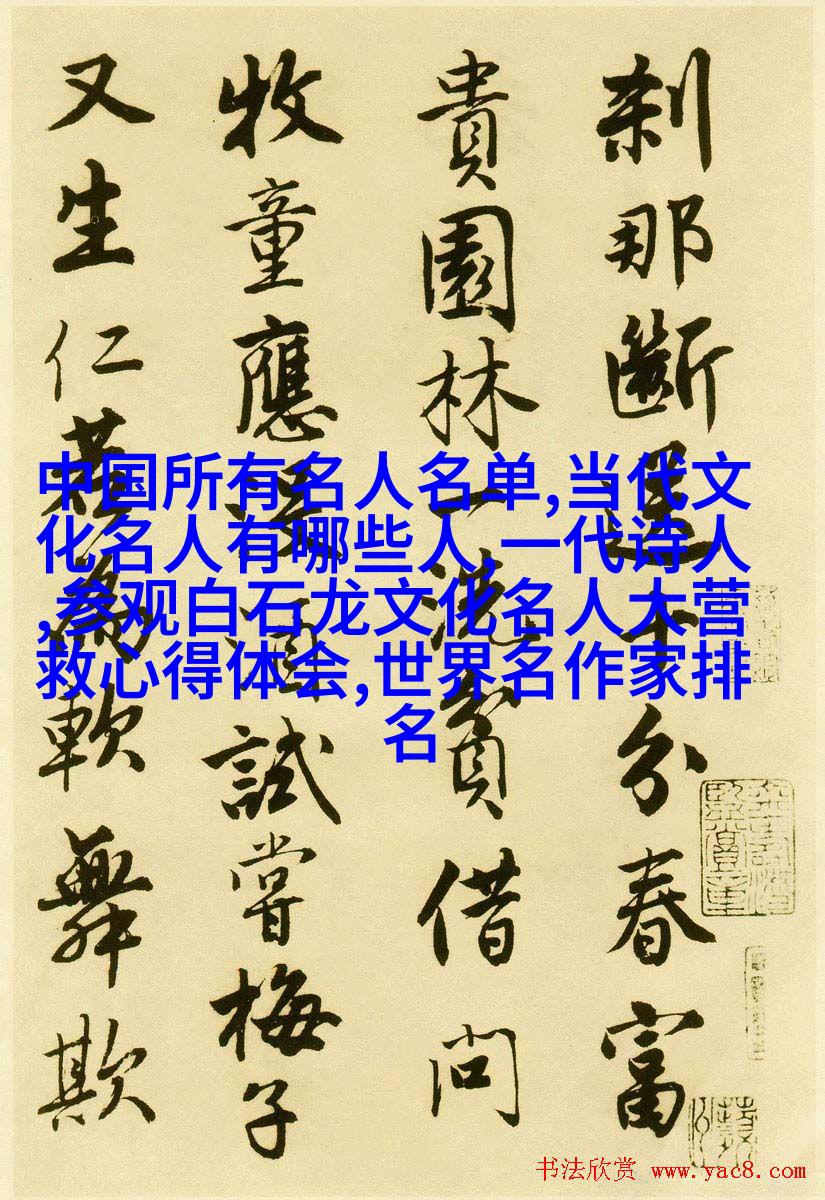 刹那斷送十分春富
貴園林一洗貧借問
牧童應沒酒試嘗梅子
又生仁若為軟舞欺
中国所有名人名单,当代文
化名人有哪些人,一代诗人
,参观白石龙文化名人大营
救心得体会,世界名作家排
名
书法欣赏 www.yac8.com